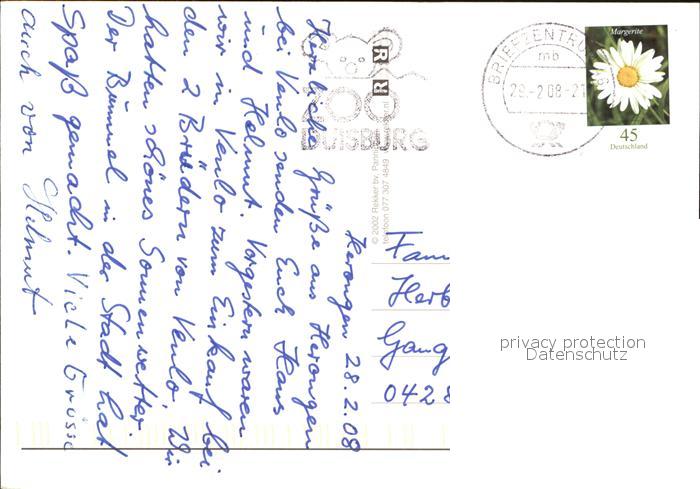 Herongen 28.2.08
Herzliche Grüße aus Herongen
bei Venlo senden Euch Hans
und Helmut. Vorgestern waren
wir in Venlo zum Einkauf bei
den 2 Brüdern von Venlo. Wir
hatten schönes Sonnenwetter.
Der Bummel in der Stadt hat
Spaß gemacht. Viele Grüsse
auch von Helmut
ZOO
DUISBURG
© 2002 Rekker bv.
telefoon 077 307 4849
BRIEFZENTRUM
mb
28.-2.08-21
Margerite
45
Deutschland
Fam
Herb
Gang
0428
privacy protection
Datenschutz